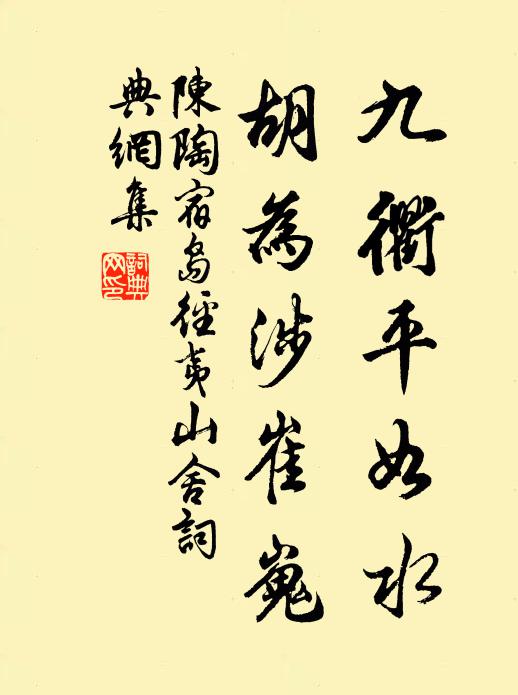 九衢平如水
胡為涉崔嵬
陳陶宿島徑夷山舍詞
典網集
詞典网印